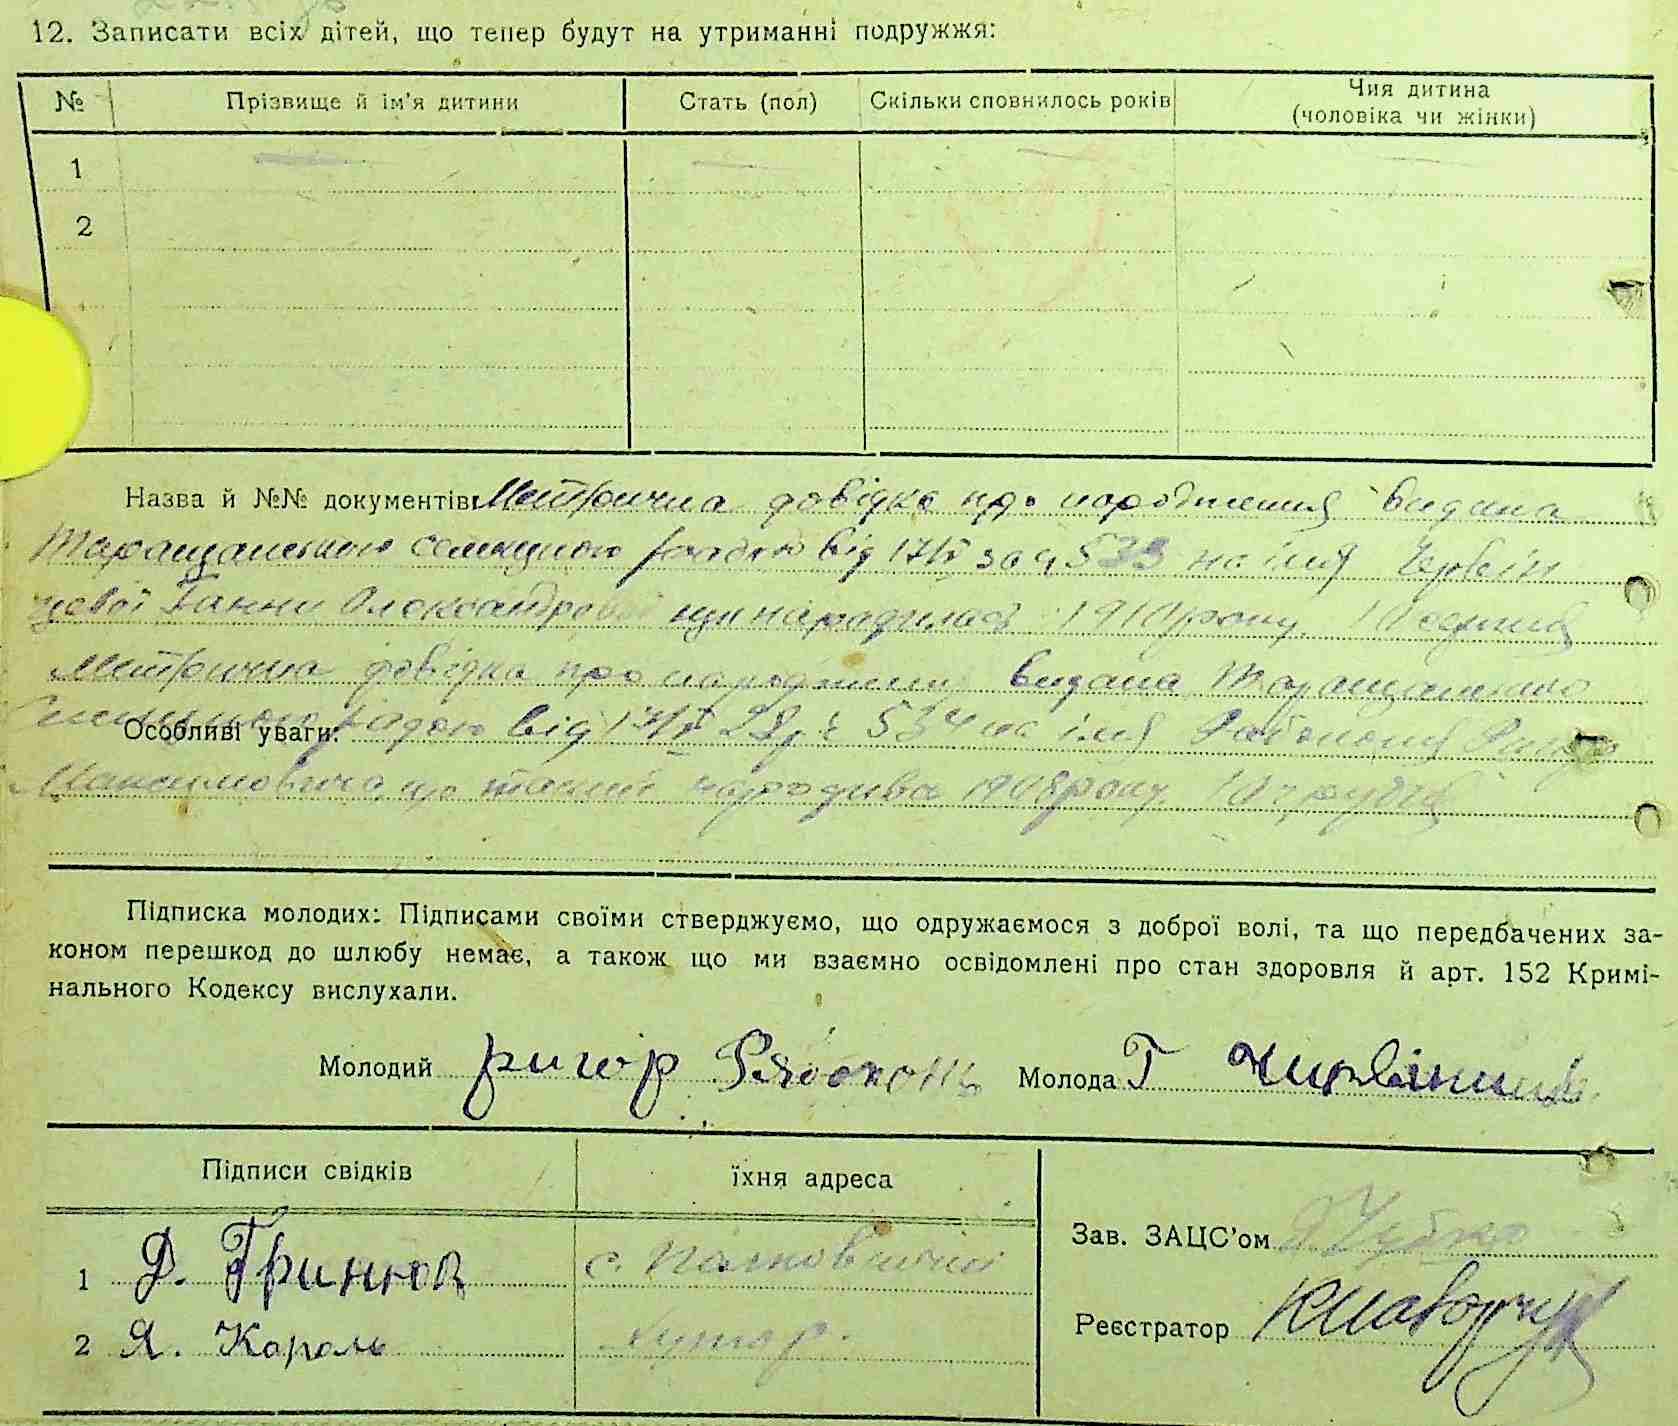 12. Записати всіх дітей, що тепер будут на утриманні подружжя:
№ Прізвище й ім'я дитини Стать (пол) Скільки сповнилось років Чия дитина
(чоловіка чи жінки)
1
2
Назва й №№ документів: Метрична довідка про народження видана
Таращанською селищною радою від 17/V за ч 533 на імя Червін
цевої Ганни Олександров що народилась 1910 року 10 серпня
Метрична довідка про народження видана Таращанською
радою від 28р ч 534 на імя
Особливі уваги:
Максимовича, що такий народився 1908 року 10
Підписка молодих: Підписами своїми стверджуємо, що одружаємося з доброї волі, та що передбачених за-
коном перешкод до шлюбу немає, а також що ми взаємно освідомлені про стан здоровля й арт. 152 Кримі-
нального Кодексу вислухали.
Молодий ригор Рябоконь Молода Г
Підписи свідків їхня адреса
Зав. ЗАЦС'ом
1 Д. Гринюк с.
Реєстратор
2 Я. Король хутор.